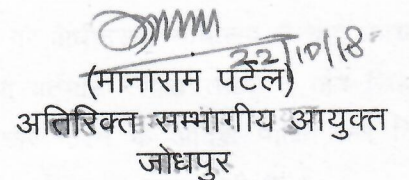 22/10/18
(मानाराम पटेल)
अतिरिक्त सम्भागीय आयुक्त
जोधपुर